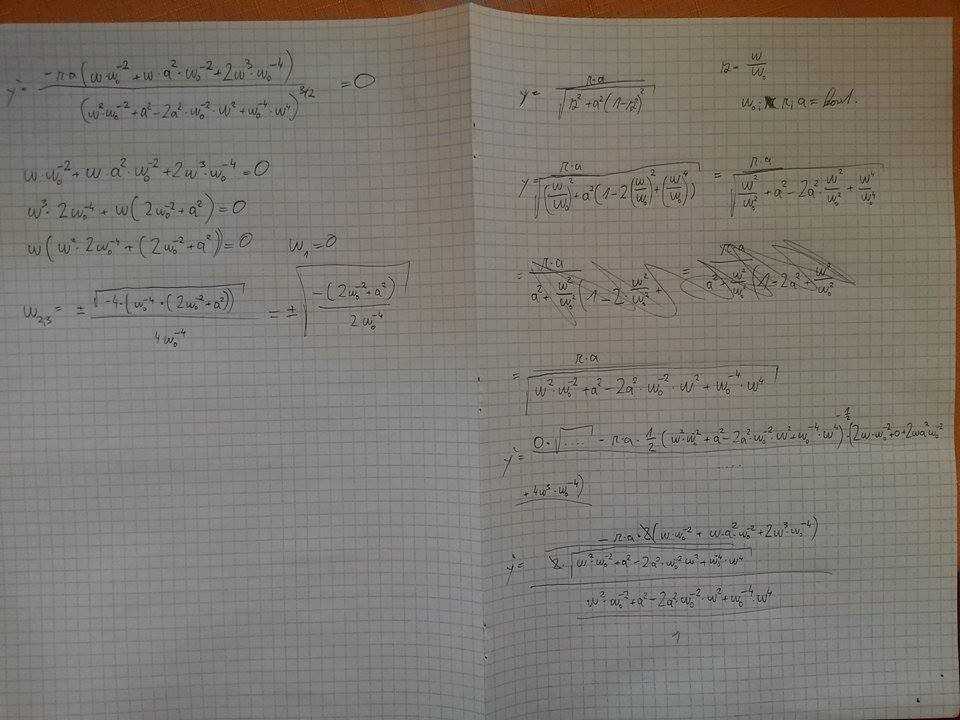 y' = -r·a(w·w₀⁻² + w·a²·w₀⁻² + 2w³·w₀⁻⁴) / (w²·w₀⁻² + a² - 2a²·w₀⁻²·w² + w₀⁻⁴·w⁴)^(3/2) = 0
w·w₀⁻² + w·a²·w₀⁻² + 2w³·w₀⁻⁴ = 0
w³·2w₀⁻⁴ + w(2w₀⁻² + a²) = 0
w(w²·2w₀⁻⁴ + (2w₀⁻² + a²)) = 0 w₁ = 0
w₂,₃ = ± √(-4·(w₀⁻⁴·(2w₀⁻² + a²))) / 4w₀⁻⁴ = ± √(-(2w₀⁻² + a²) / 2w₀⁻⁴)
y = r·a / √(η² + a²(1-η²)²) η = w/w₀
w₀; r, a = konst.
y = r·a / √((w/w₀)² + a²(1 - 2(w/w₀)² + (w/w₀)⁴)) = r·a / √(w²/w₀² + a² - 2a²·w²/w₀² + w⁴/w₀⁴)
= r·a / √(w²·w₀⁻² + a² - 2a²·w₀⁻²·w² + w₀⁻⁴·w⁴)
y' = 0·√(....) - r·a·1/2 (w²·w₀⁻² + a² - 2a²·w₀⁻²·w² + w₀⁻⁴·w⁴)^(-1/2)·(2w·w₀⁻² + 0 + 2wa²w₀⁻²
.....
+ 4w³·w₀⁻⁴)
y' = -r·a·2(w·w₀⁻² + w·a²·w₀⁻² + 2w³·w₀⁻⁴)
2·√(w²·w₀⁻² + a² - 2a²·w₀⁻²·w² + w₀⁻⁴·w⁴)
w²·w₀⁻² + a² - 2a²·w₀⁻²·w² + w₀⁻⁴·w⁴
1